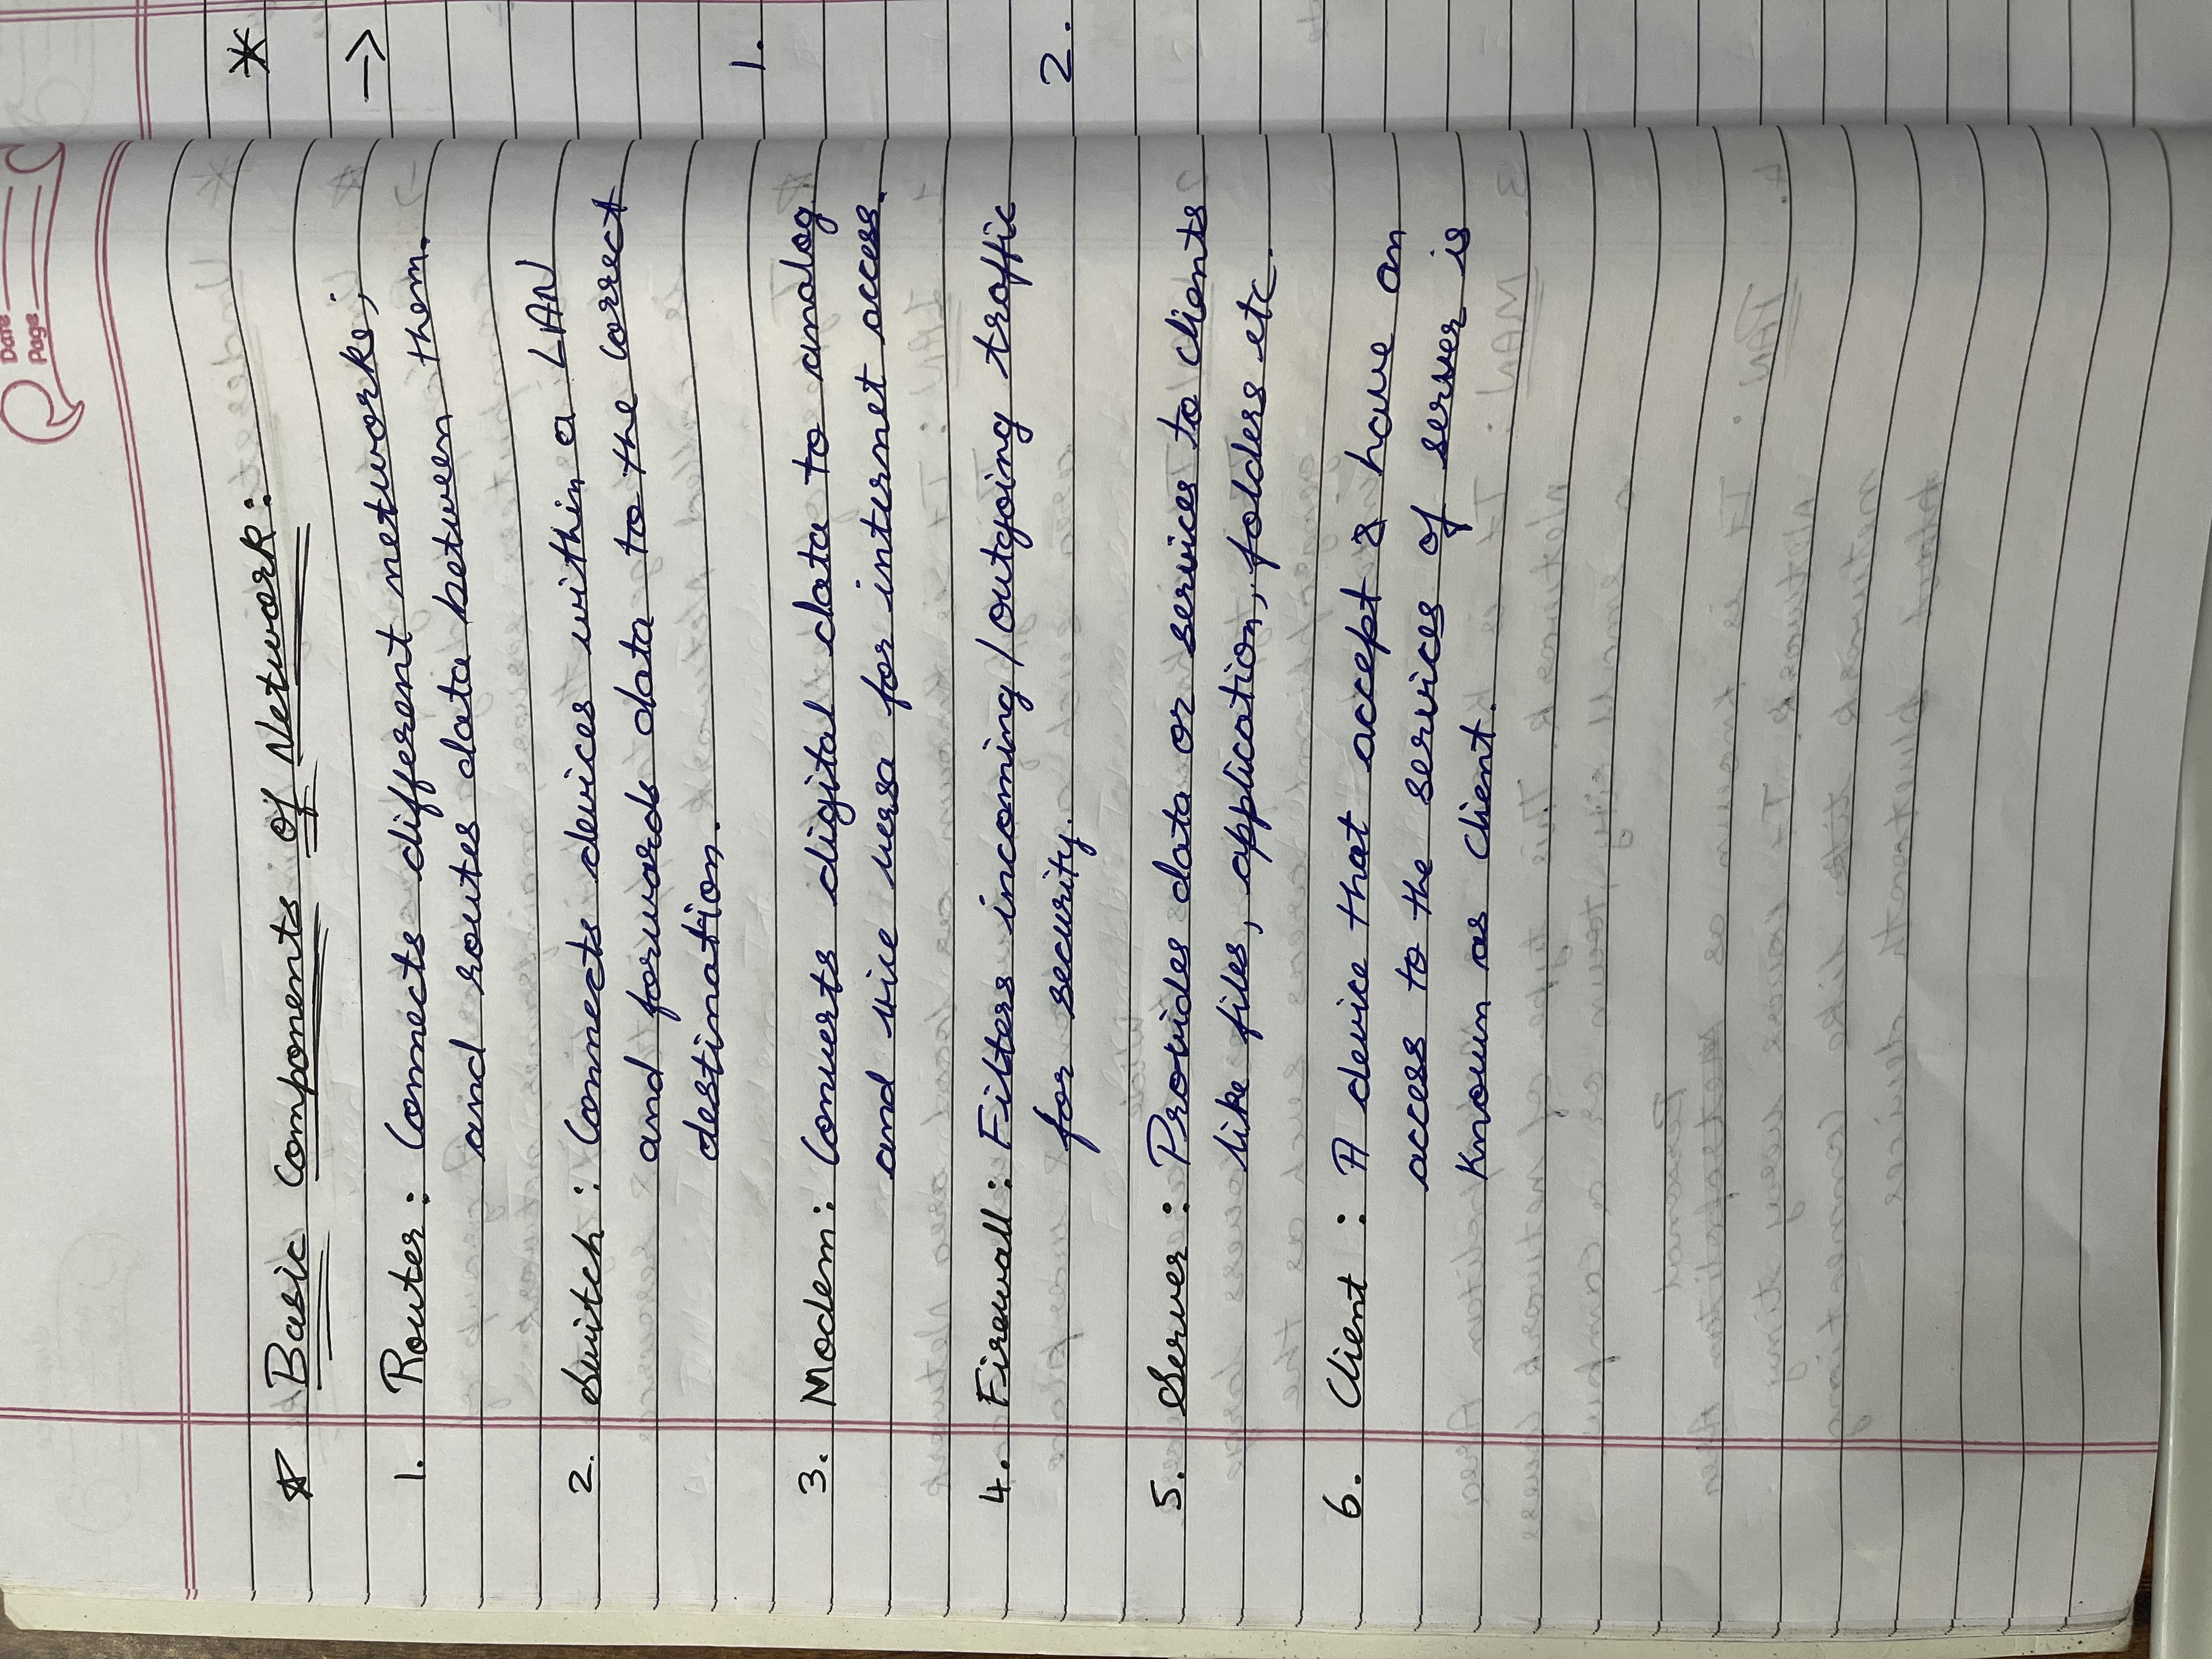 Date
Page
☆ Basic Components of Network:
1. Router: Connects different networks,
and routes data between them.
2. Switch: Connects devices within a LAN
and forwards data to the correct
destination.
3. Modem: Converts digital data to analog
and vice versa for internet access.
4. Firewall: Filters incoming/outgoing traffic
for security.
5. Server: Provides data or services to clients
like files, application, folders etc.
6. Client: A device that accept & have an
access to the services of server is
known as client.
*
→
1.
2.